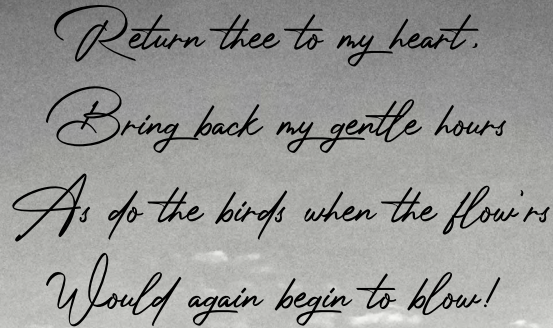 Return thee to my heart,
Bring back my gentle hours
As do the birds when the flow'rs
Would again begin to blow!